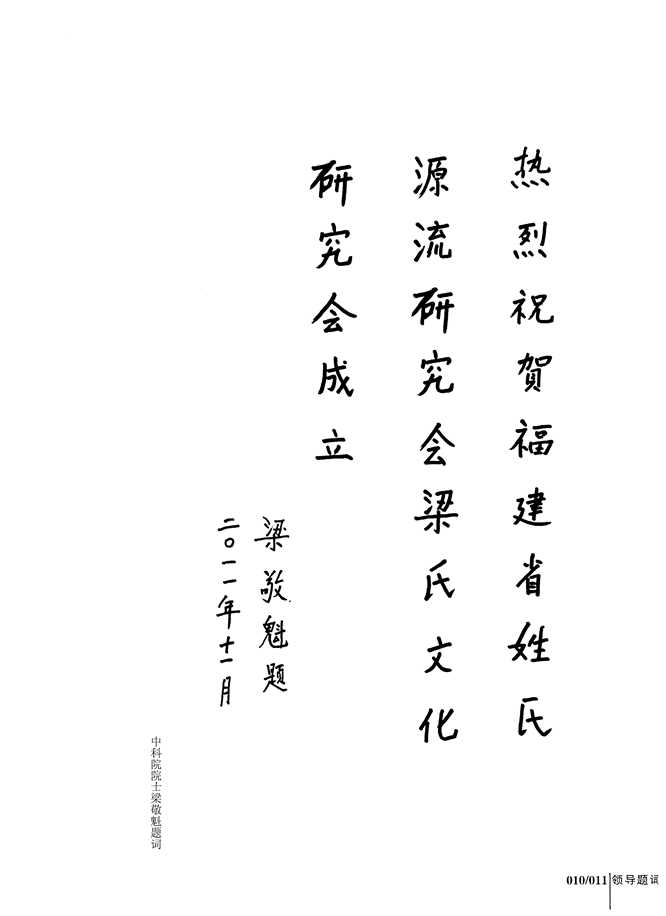 热烈祝贺福建省姓氏
源流研究会梁氏文化
研究会成立
梁敬魁题
二〇一一年十一月
中科院院士梁敬魁题词
010/011 领导题词